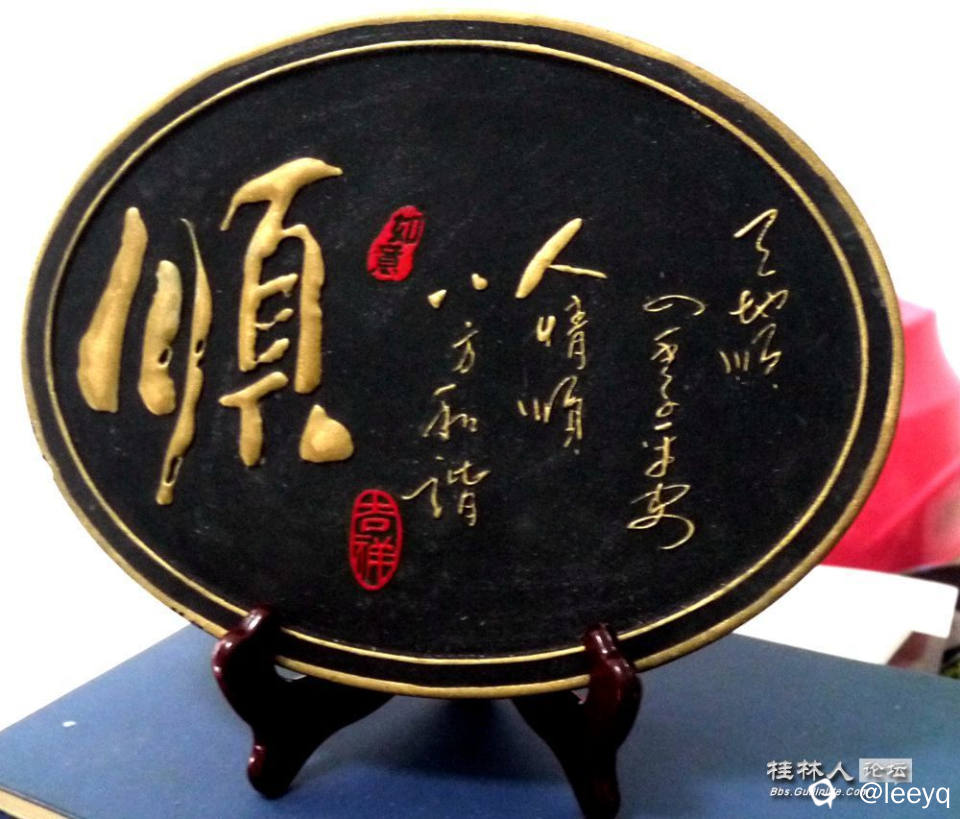 天地順
四季平安
人情順
八方和谐
如意
順
吉祥
桂林人论坛
Bbs.Guilinlife.Com
@leeyq